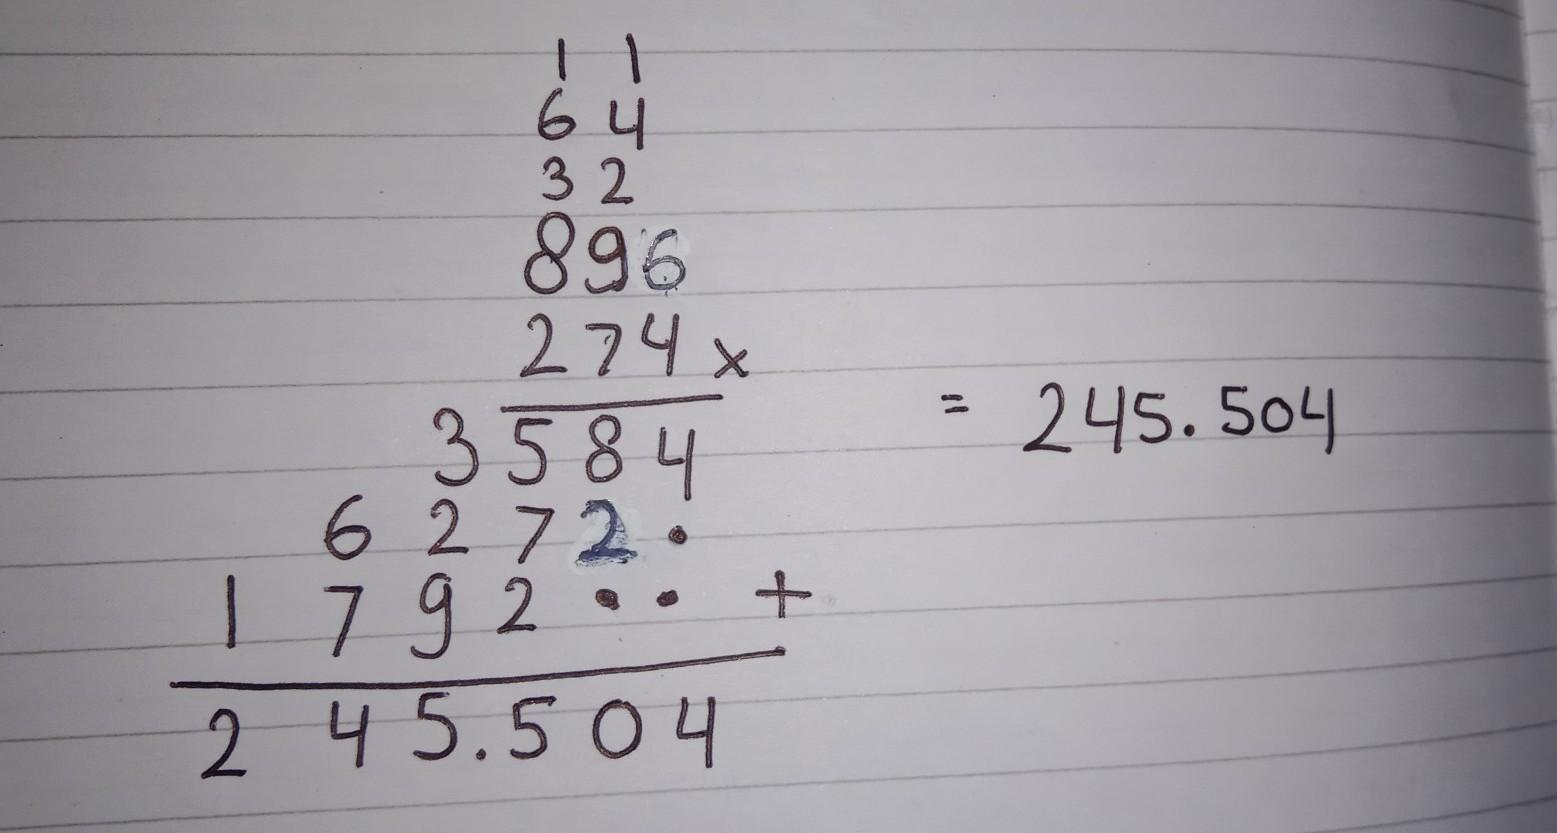 1 1
6 4
3 2
896
274 x
3 5 8 4
6 2 7 2 •
1 7 9 2 • • +
2 4 5.5 0 4
= 245.504